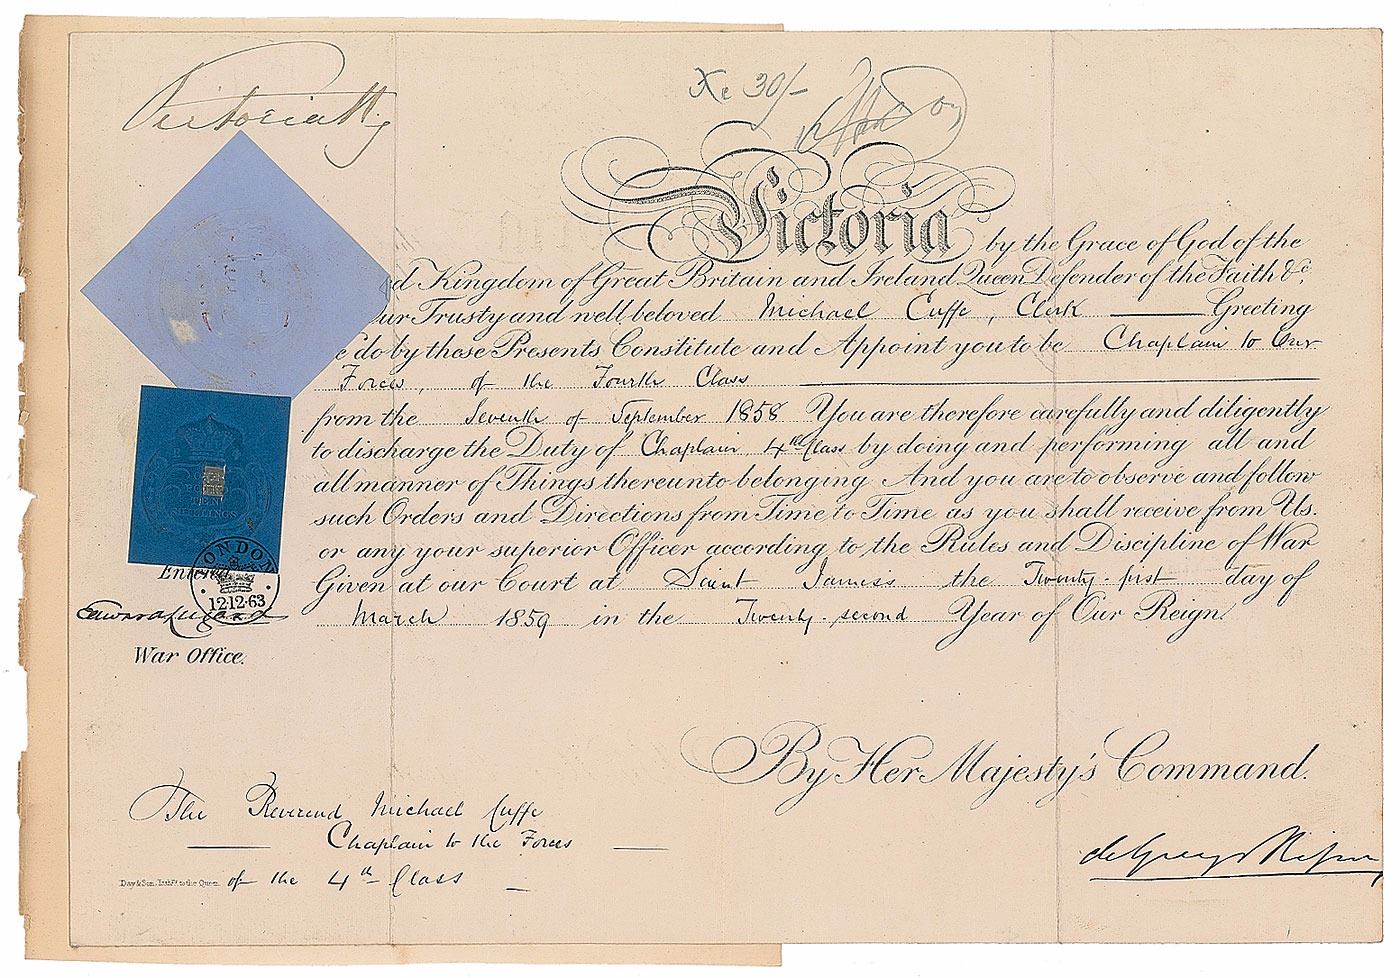 Victoria R
Xe 30/-
Victoria by the Grace of God of the
d Kingdom of Great Britain and Ireland Queen Defender of the Faith &c,
ur Trusty and well beloved Michael Cuffe, Clerk Greeting
e do by these Presents Constitute and Appoint you to be Chaplain to Our
Forces, of the Fourth Class
from the Seventh of September 1858 You are therefore carefully and diligently
to discharge the Duty of Chaplain 4th Class by doing and performing all and
all manner of Things thereunto belonging And you are to observe and follow
such Orders and Directions from Time to Time as you shall receive from Us.
or any your superior Officer according to the Rules and Discipline of War
Given at our Court at Saint James's the Twenty-first day of
March 1859 in the Twenty-second Year of Our Reign.
TEN
SHILLINGS
LONDON
12·12·63
Entered
Edward Lugard
War Office.
By Her Majesty's Command.
The Reverend Michael Cuffe
Chaplain to the Forces
of the 4th Class
Day & Son, Lithrs. to the Queen
de Grey & Ripon